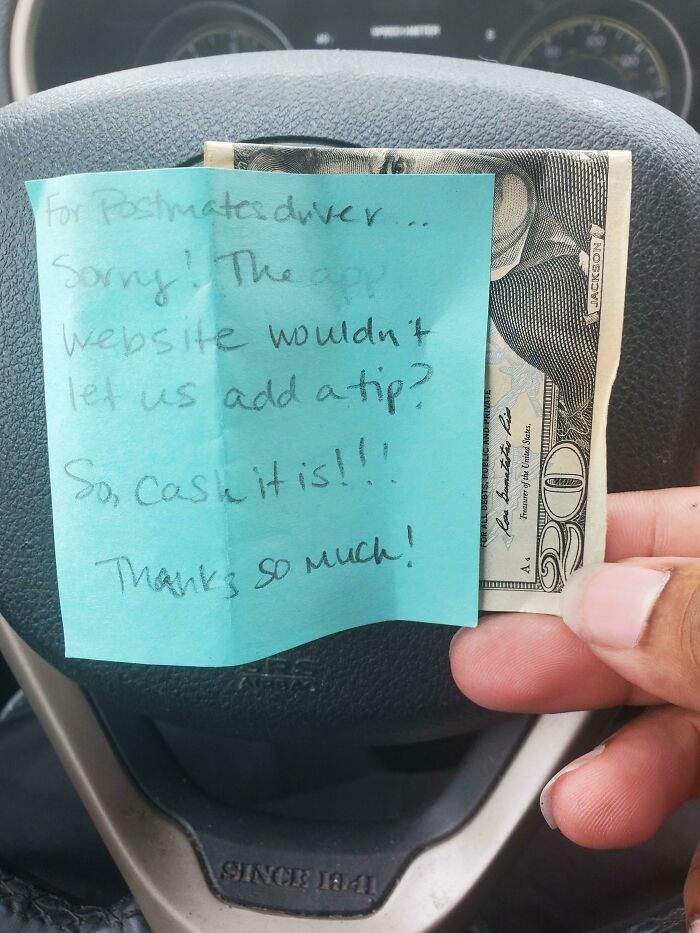 For Postmates driver...
Sorry! The app
website wouldn't
let us add a tip?
So, cash it is!!!
Thanks so much!
JACKSON
FOR ALL DEBTS, PUBLIC AND PRIVATE
Treasurer of the United States.
A 4
20
SINCE 1941